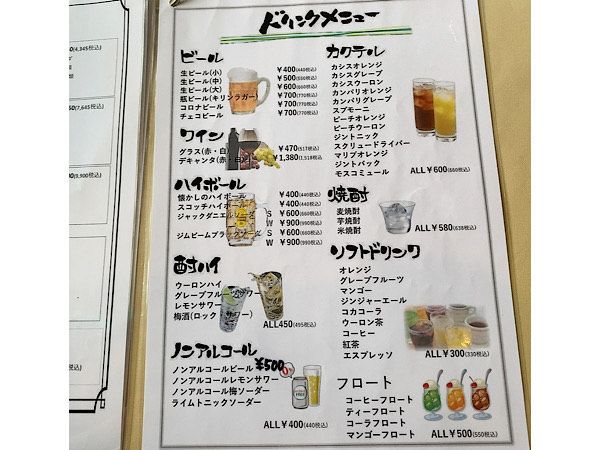 0(4,345税込)
50(7,645税込)
0(3,300税込)
(税込)
ドリンクメニュー
ビール
生ビール(小) ¥400(440税込)
生ビール(中) ¥500(550税込)
生ビール(大) ¥600(660税込)
瓶ビール(キリンラガー) ¥700(770税込)
コロナビール ¥700(770税込)
チェコビール ¥700(770税込)
ワイン
グラス(赤・白) ¥470(517税込)
デキャンタ(赤・白) ¥1,380(1,518税込
ハイボール
懐かしのハイボール ¥400(440税込)
スコッチハイボール ¥400(440税込)
ジャックダニエルソーダ S ¥600(660税込)
W ¥900(990税込)
ジムビームブラックソーダ S ¥600(660税込)
W ¥900(990税込)
酎ハイ
ウーロンハイ
グレープフルーツサワー
レモンサワー
梅酒(ロック サワー)
ALL450(495税込)
ノンアルコール
ノンアルコールビール ¥500
ノンアルコールレモンサワー
ノンアルコール梅ソーダー
ライムトニックソーダー
ALL ¥400(440税込)
カクテル
カシスオレンジ
カシスグレープ
カシスウーロン
カンパリオレンジ
カンパリグレープ
スプモーニ
ピーチオレンジ
ピーチウーロン
ジントニック
スクリュードライバー
マリブオレンジ
ジントバック
モスコミュール ALL ¥600(660税込)
焼酎
麦焼酎
芋焼酎
米焼酎 ALL ¥580(638税込)
ソフトドリンク
オレンジ
グレープフルーツ
マンゴー
ジンジャーエール
コカコーラ
ウーロン茶
コーヒー
紅茶
エスプレッソ ALL ¥300(330税込)
フロート
コーヒーフロート
ティーフロート
コーラフロート
マンゴーフロート ALL ¥500(550税込)